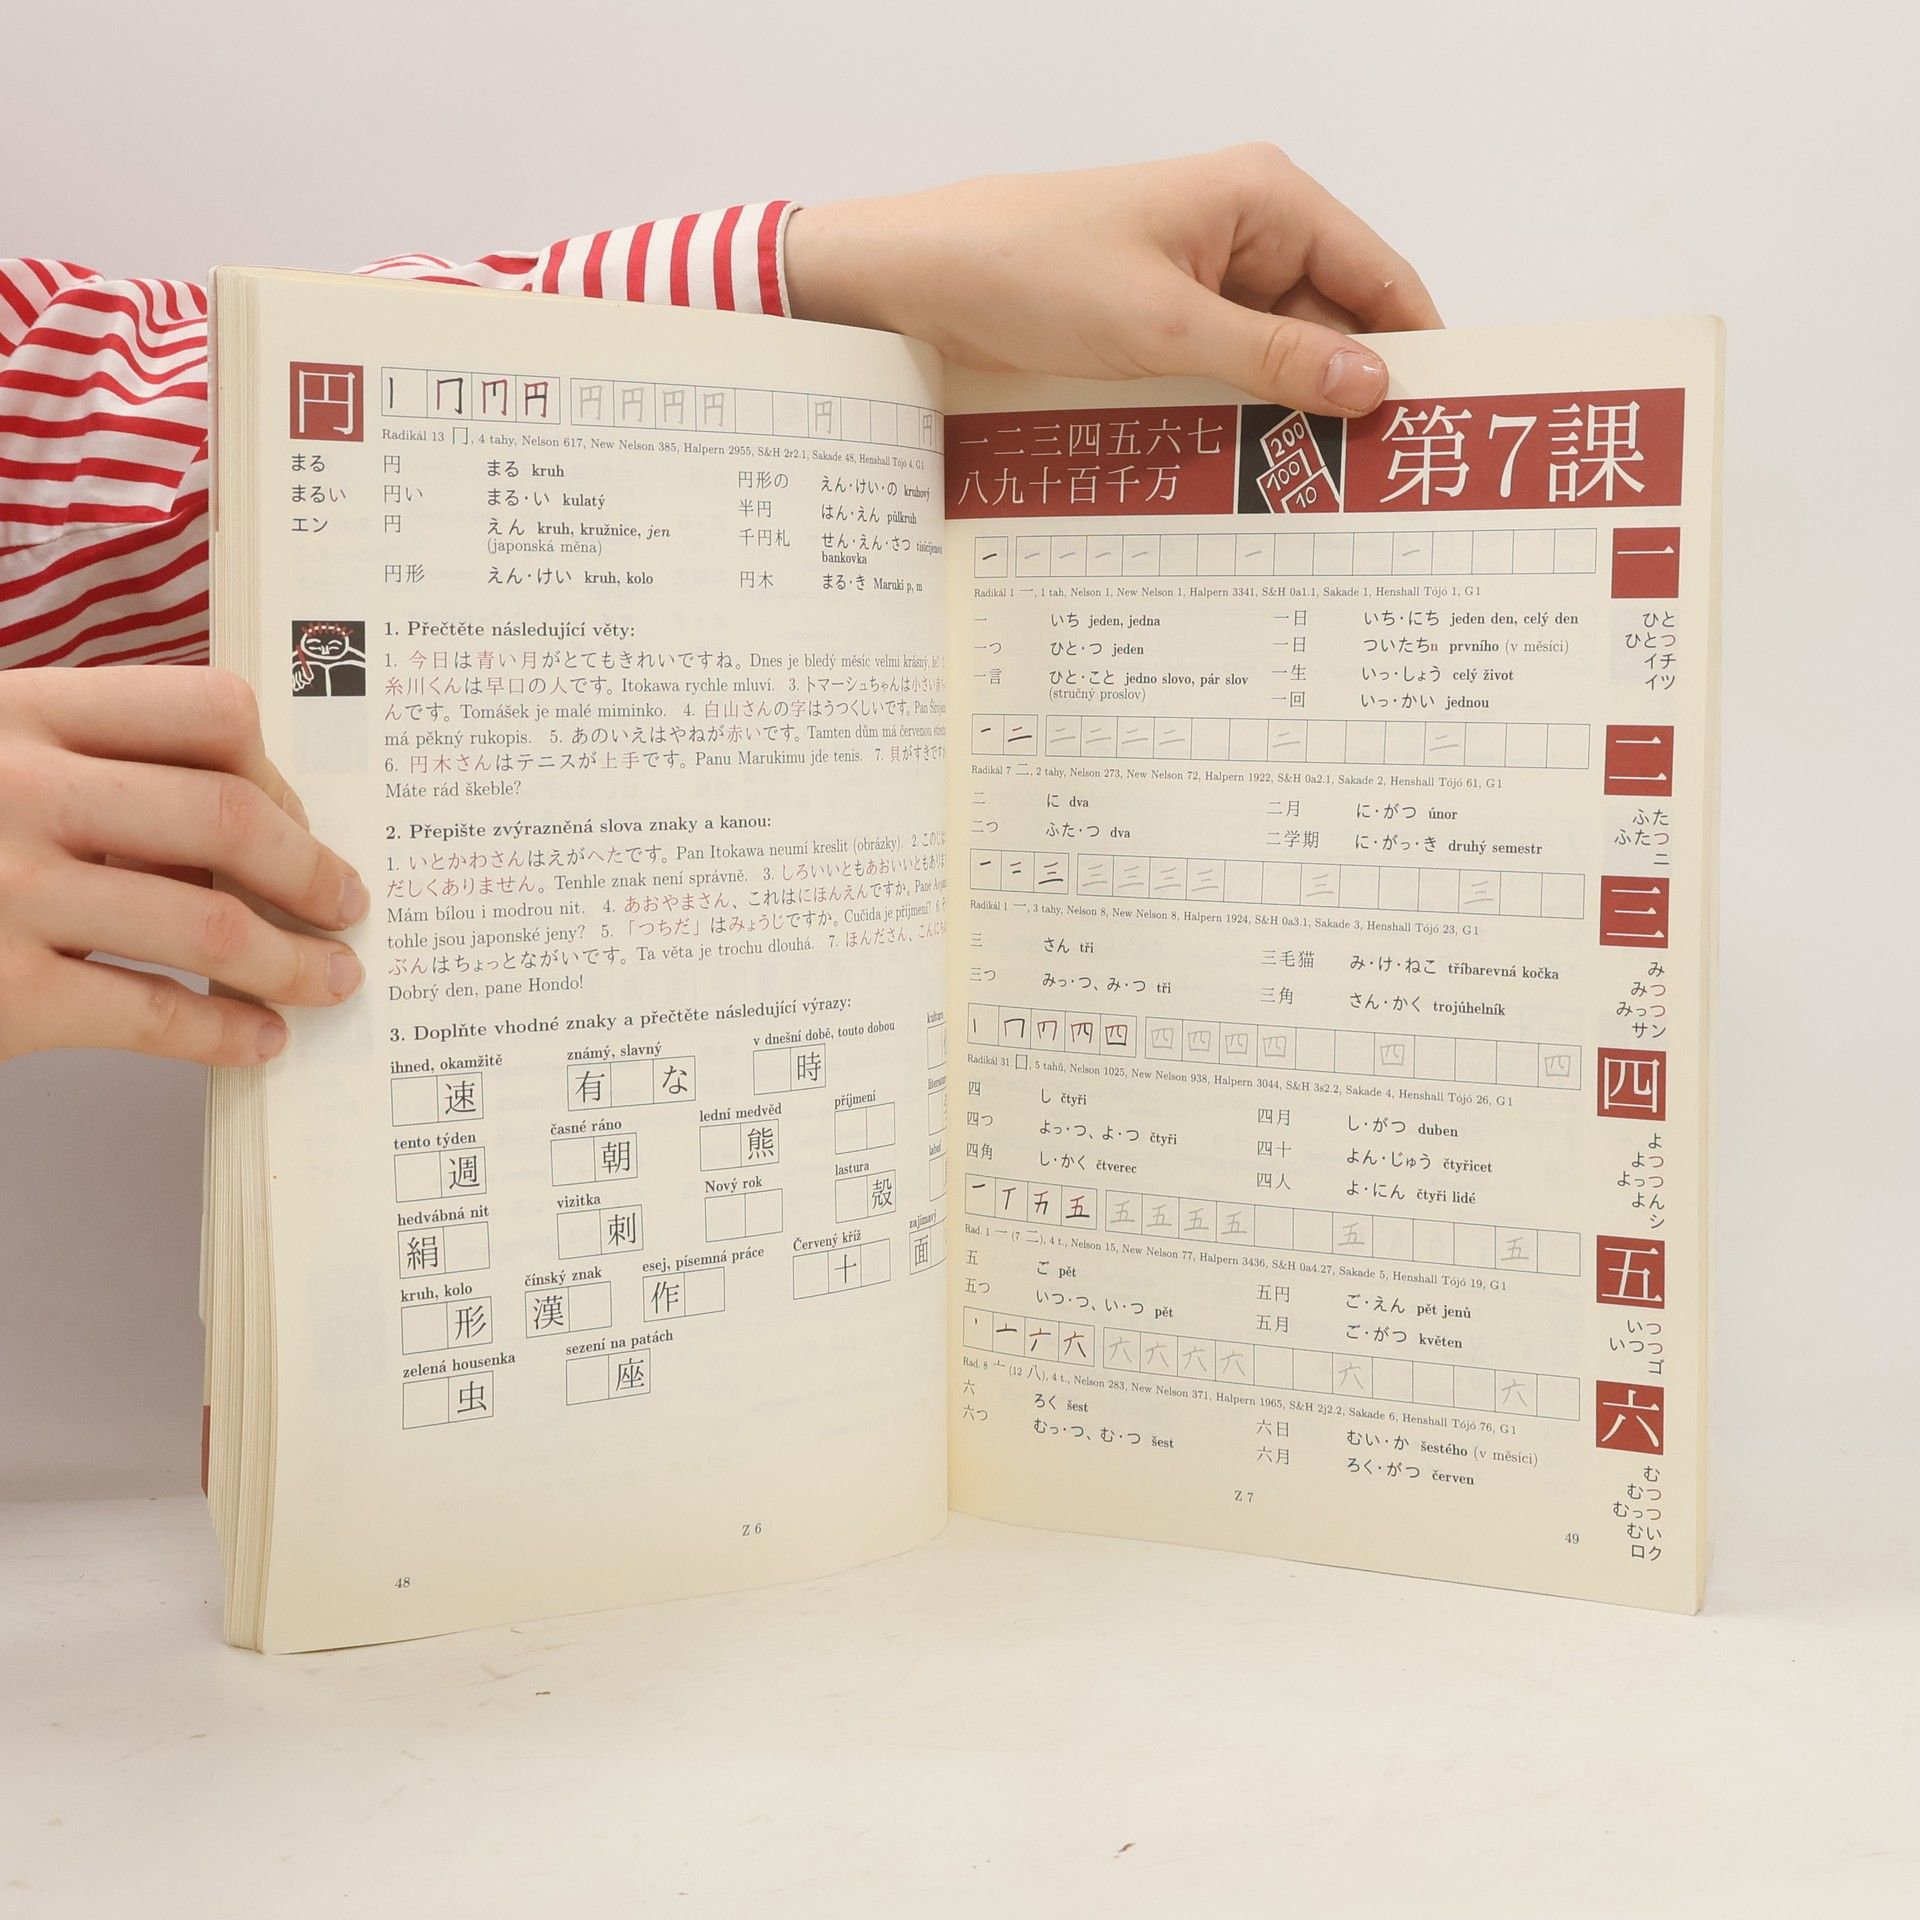 円
Radikál 13 冂, 4 tahy, Nelson 617, New Nelson 385, Halpern 2955, S&H 2r2.1, Sakade 48, Henshall Tójó 4, G1
まる 円 まる kruh
まるい 円い まる・い kulatý
エン 円 えん kruh, kružnice, jen
(japonská měna)
円形 えん・けい kruh, kolo
円形の えん・けい・の kruhový
半円 はん・えん půlkruh
千円札 せん・えん・さつ tisícijenová
bankovka
円木 まる・き Maruki p, m
1. Přečtěte následující věty:
1. 今日は青い月がとてもきれいですね。Dnes je bledý měsíc velmi krásný,
糸川くんは早口の人です。Itokawa rychle mluví. 3. トマーシュちゃんは小さい
んです。Tomášek je malé miminko. 4. 白山さんの字はうつくしいです。Pan
má pěkný rukopis. 5. あのいえはやねが赤いです。Tamten dům má červenou
6. 円木さんはテニスが上手です。Panu Marukimu jde tenis. 7. 貝がすきです
Máte rád škeble?
2. Přepište zvýrazněná slova znaky a kanou:
1. いとかわさんはえがへたです。Pan Itokawa neumí kreslit (obrázky). 2. このじは
だしくありません。Tenhle znak není správně. 3. しろいいともあおいいともあり
Mám bílou i modrou nit. 4. あおやまさん、これはにほんえんですか。Pane
tohle jsou japonské jeny? 5. 「つちだ」はみょうじですか。Cučida je příjmení? 6.
ぶんはちょっとながいです。Ta věta je trochu dlouhá. 7. ほんださん、こんに
Dobrý den, pane Hondo!
3. Doplňte vhodné znaky a přečtěte následující výrazy:
ihned, okamžitě známý, slavný v dnešní době, touto dobou
速 有 な 時
tento týden časné ráno lední medvěd příjmení
週 朝 熊
hedvábná nit vizitka Nový rok lastura
絹 刺 殻
kruh, kolo čínský znak esej, písemná práce Červený kříž zajímavý
形 漢 作 十 面
zelená housenka sezení na patách
虫 座
Z 6
48
一二三四五六七
八九十百千万
200
100
10
第7課
一
Radikál 1 一, 1 tah, Nelson 1, New Nelson 1, Halpern 3341, S&H 0a1.1, Sakade 1, Henshall Tójó 1, G1
一 いち jeden, jedna 一日 いち・にち jeden den, celý den
一つ ひと・つ jeden 一日 ついたちn prvního (v měsíci)
一言 ひと・こと jedno slovo, pár slov 一生 いっ・しょう celý život
(stručný proslov) 一回 いっ・かい jednou
ひと
ひとつ
イチ
イツ
二
Radikál 7 二, 2 tahy, Nelson 273, New Nelson 72, Halpern 1922, S&H 0a2.1, Sakade 2, Henshall Tójó 61, G1
二 に dva 二月 に・がつ únor
二つ ふた・つ dva 二学期 に・がっ・き druhý semestr
ふた
ふたつ
ニ
三
Radikál 1 一, 3 tahy, Nelson 8, New Nelson 8, Halpern 1924, S&H 0a3.1, Sakade 3, Henshall Tójó 23, G1
三 さん tři 三毛猫 み・け・ねこ tříbarevná kočka
三つ みっ・つ、み・つ tři 三角 さん・かく trojúhelník
み
みつ
みっつ
サン
四
Radikál 31 囗, 5 tahů, Nelson 1025, New Nelson 938, Halpern 3044, S&H 3s2.2, Sakade 4, Henshall Tójó 26, G1
四 し čtyři 四月 し・がつ duben
四つ よっ・つ、よ・つ čtyři 四十 よん・じゅう čtyřicet
四角 し・かく čtverec 四人 よ・にん čtyři lidé
よ
よつ
よっつ
よん
シ
五
Rad. 1 一 (7 二), 4 t., Nelson 15, New Nelson 77, Halpern 3436, S&H 0a4.27, Sakade 5, Henshall Tójó 19, G1
五 ご pět 五円 ご・えん pět jenů
五つ いつ・つ、い・つ pět 五月 ご・がつ květen
いつ
いつつ
ゴ
六
Rad. 8 亠 (12 八), 4 t., Nelson 283, New Nelson 371, Halpern 1965, S&H 2j2.2, Sakade 6, Henshall Tójó 76, G1
六 ろく šest 六日 むい・か šestého (v měsíci)
六つ むっ・つ、む・つ šest 六月 ろく・がつ červen
む
むつ
むっつ
むい
ロク
Z 7
49